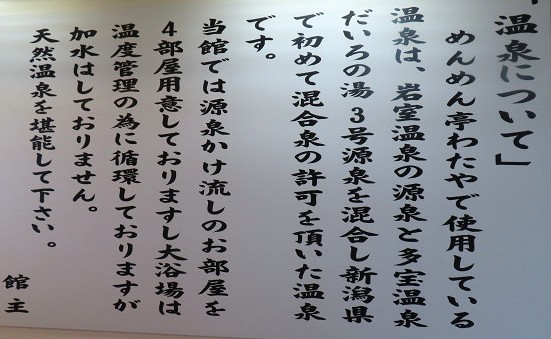 「温泉について」
めんめん亭わたやで使用している
温泉は、岩室温泉の源泉と多宝温泉
だいろの湯3号源泉を混合し新潟県
で初めて混合泉の許可を頂いた温泉
です。
当館では源泉かけ流しのお部屋を
4部屋用意しておりますし大浴場は
温度管理の為に循環しておりますが
加水はしておりません。
天然温泉を堪能して下さい。
館主